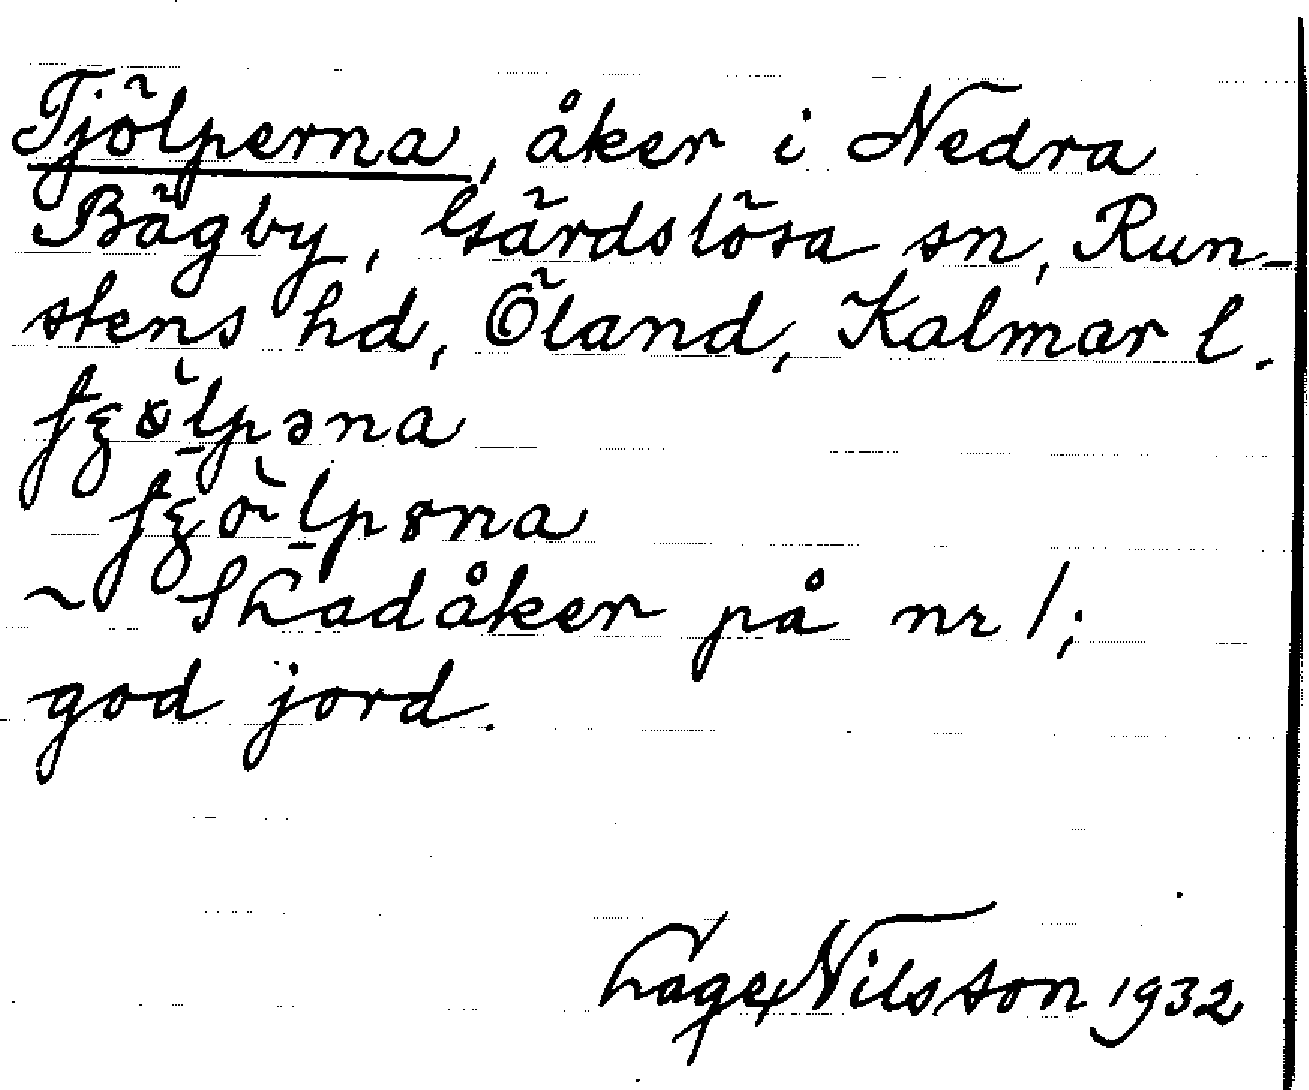 Tjölperna, åker i Nedra
Bägby, Gärdslösa sn, Run-
stens hd, Öland, Kalmar l.
~ Thadåker på nr 1;
god jord.
Lage Nilsson 1932